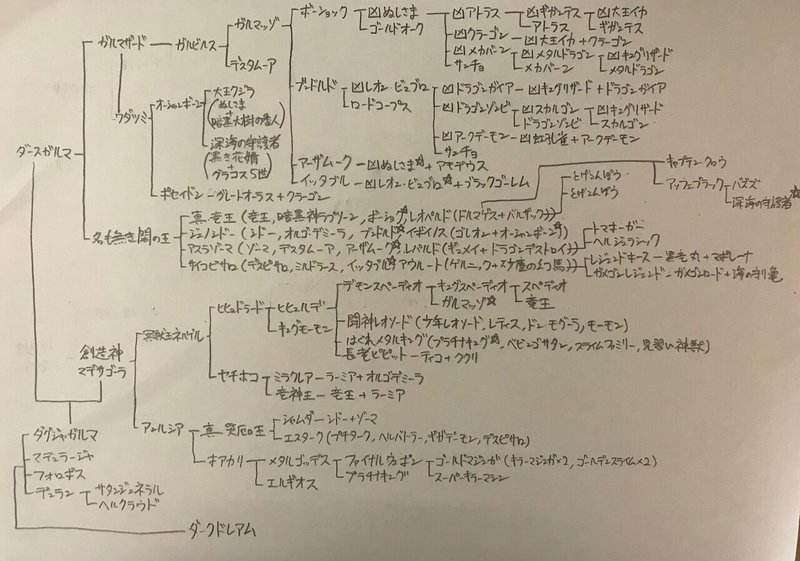 ダースガルマ
ガルマザード
ガルビルス
ガルマッゾ
デスタムーア
ボーショック
凶ぬしさま
ゴールドオーク
凶アトラス
凶ギガンテス
アトラス
凶大王イカ
ギガンテス
凶クラーゴン
凶大王イカ+クラーゴン
凶メカバーン
サンチョ
凶メタルドラゴン
メカバーン
凶キングリザード
メタルドラゴン
ブンドルド
凶レオン・ビュブロ
ロードコープス
凶ドラゴンガイアー
凶キングリザード+ドラゴンガイア
凶ドラゴンゾンビ
凶スカルゴン
ドラゴンゾンビ
凶キングリザード
スカルゴン
凶アークデーモン
凶虹孔雀+アークデーモン
サンチョ
アーザムーク
凶ぬしさま☆+アモデウス
イッタブル
凶レオン・ビュブロ☆+ブラックゴーレム
ウダツミ
オーシャンボーン
大王クジラ
(ぬしさま
暗黒大樹の番人)
深海の守護者
(黒き花婿
グラコス5世)
ポセイドン
グレートオーラス+クラーゴン
名も無き闇の王
真・竜王(竜王,暗黒神ラプソーン,ボーショック☆,レオペルド(ドルマゲス+バルザック))
ジェノシドー(シドー,オルゴ・デミーラ,ブンドルド☆,イギノイノス(ゴレオン+オーシャンボーン☆))
アスラゾーマ(ゾーマ,デスタムーア,アーザムーク☆,レパルド(ギュメイ+ドラゴンデストロイ))
サイコピサロ(デスピサロ,ミルドラース,イッタブル☆,アウルート(ゲルニック+妖魔の幻馬))
キャプテンクロウ
アッフェブラック
バズズ
深海の守護者☆
とげこんぼう
とげこんぼう
トマキーガー
ヘルジュラシック
レジェンドホース
黒竜丸+マポレーナ
ガメゴンレジェンド
ガメゴンロード+海の守り亀
創造神
マデサゴーラ
冥獣王ネルゲル
ヒヒュドラード
ヒヒュルデ
キングモーモン
デモンスペーディオ
キングスペーディオ
ガルマッゾ☆
スペディオ
竜王
闘神レオソード(少年レオソード,レティス,ドン・モグーラ,モーモン)
はぐれメタルキング(プラチナキング☆,ベビーサタン,スライムファミリー,見習い神獣)
長老ピピット
ティコ+ククリ
ヤチホコ
ミラクレア
ラーミア+オルゴデミーラ
竜神王
竜王+ラーミア
アンルシア
真・災厄の王
ジャムダ
シドー+ゾーマ
エスターク(プチターク,ヘルバトラー,ギガデーモン,デスピサロ)
ホアカリ
メタルゴッデス
エルギオス
ファイナルウェポン
プラチナキング
ゴールドマジンガ(キラーマジンガ×2,ゴールデンスライム×2)
スーパーキラーマシン
ダグジャガルマ
マデュラージャ
フォロボス
デュラン
サタンジェネラル
ヘルクラウド
ダークドレアム